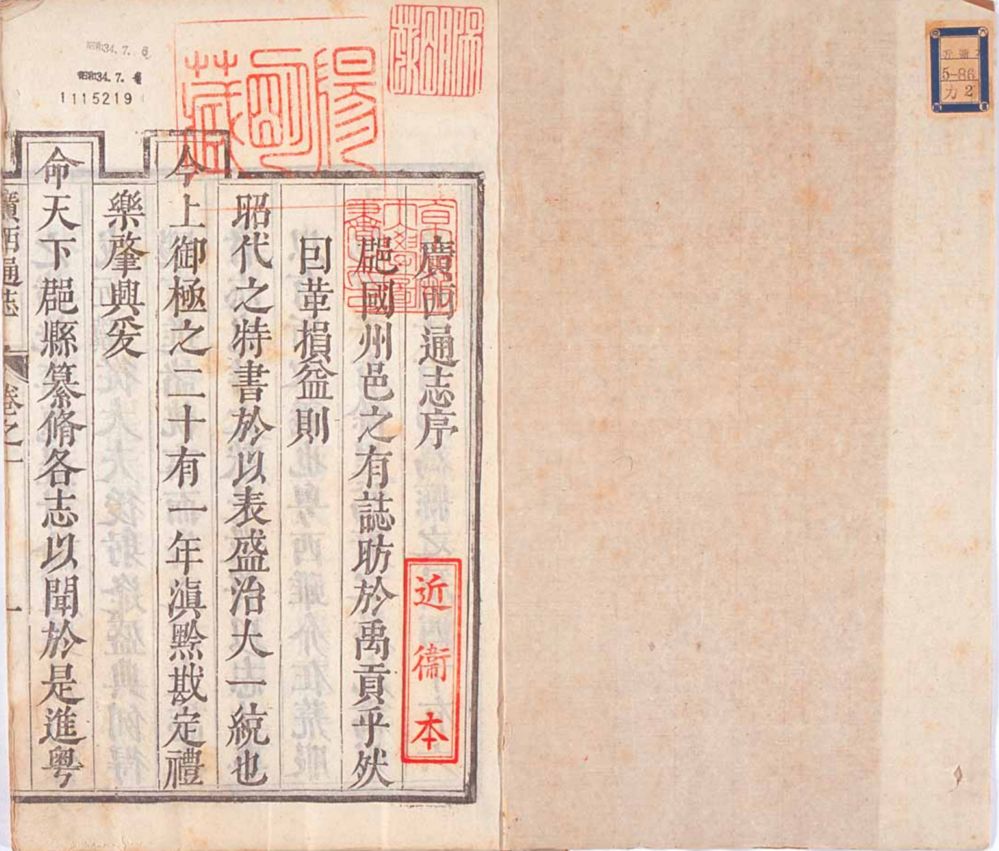 廣西通志序
郡國州邑之有誌昉於禹貢乎然
因革損益則
昭代之特書於以表盛治大一統也
今上御極之二十有一年滇黔戡定禮
樂肇興爰
命天下郡縣纂脩各志以聞於是進粤
廣西通志
卷之一
一
近衞本
陽明藏
陽明藏
昭和34.7.6
昭和34.7.6
1115219
5-86
カ 2